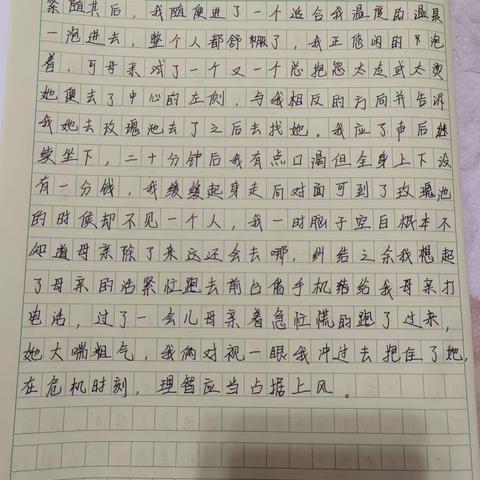 紧随其后，我随便进了一个适合我温度的温泉
一泡进去，整个人都舒服了，我正悠闲的泡
着，可母亲试了一个又一个总抱怨太凉或太烫
她便去了中心的左侧，与我相反的方向并告诉
我她去玫瑰池去了之后去找她。我应了声后继
续坐下，二十分钟后我有点口渴但全身上下没
有一分钱，我缓缓起身走向对面可到了玫瑰池
的时候却不见一个人，我一时脑子空白根本不
知道母亲除了来这还会去哪，纠结之余我想起
了母亲的话紧忙跑去前台借手机给我母亲打
电话，过了一会儿母亲着急忙慌的跑了过来，
她大喘粗气，我俩对视一眼我冲过去抱住了她，
在危机时刻，理智应当占据上风。